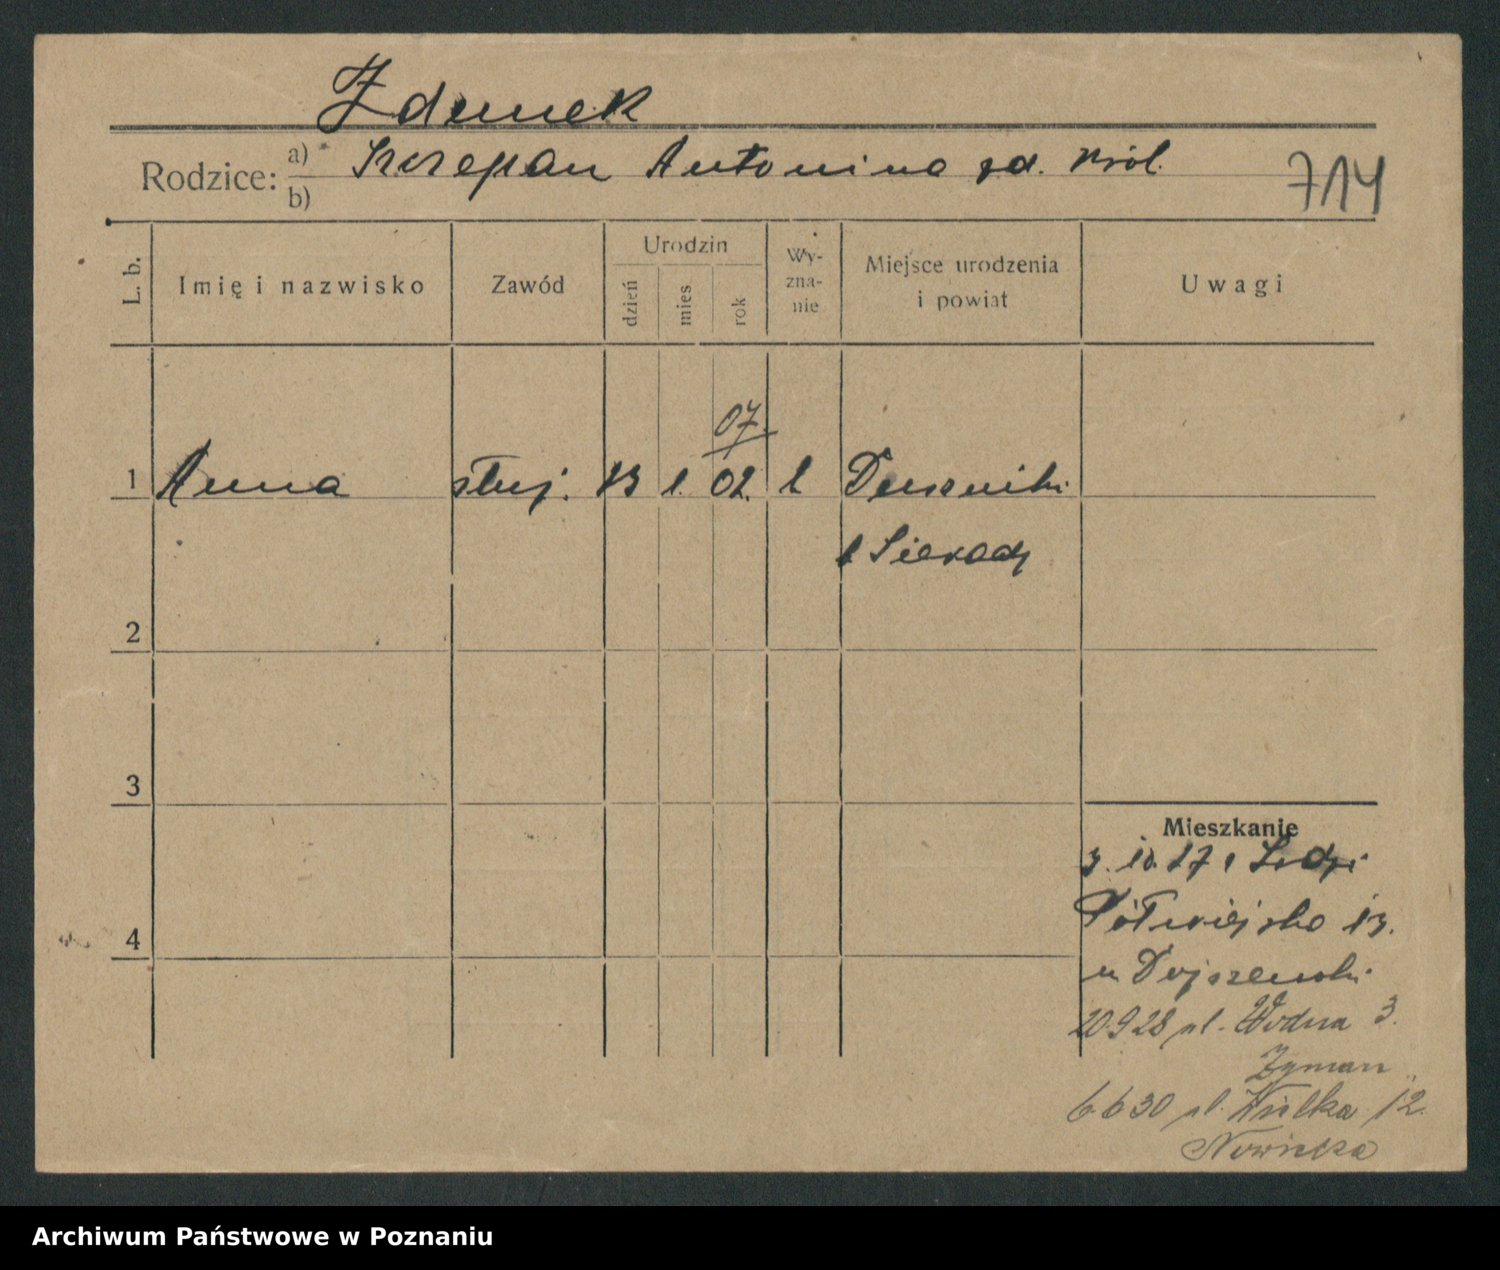 Zdunek
Rodzice: a) Szczepan Antonina zd. Król.
b)
714
L. b.
Imię i nazwisko
Zawód
Urodzin
dzień
mies
rok
Wy-
zna-
nie
Miejsce urodzenia
i powiat
Uwagi
07.
1 Anna służ. 13 1. 02. k
Sieradz
2
3
4
Mieszkanie
3. 10. 27 z Łodzi
Półwiejska 13.
u
20.9.28 ul. Wodna 3.
Zyman
6.6.30 ul. Wielka 12.
Nowicka
Archiwum Państwowe w Poznaniu